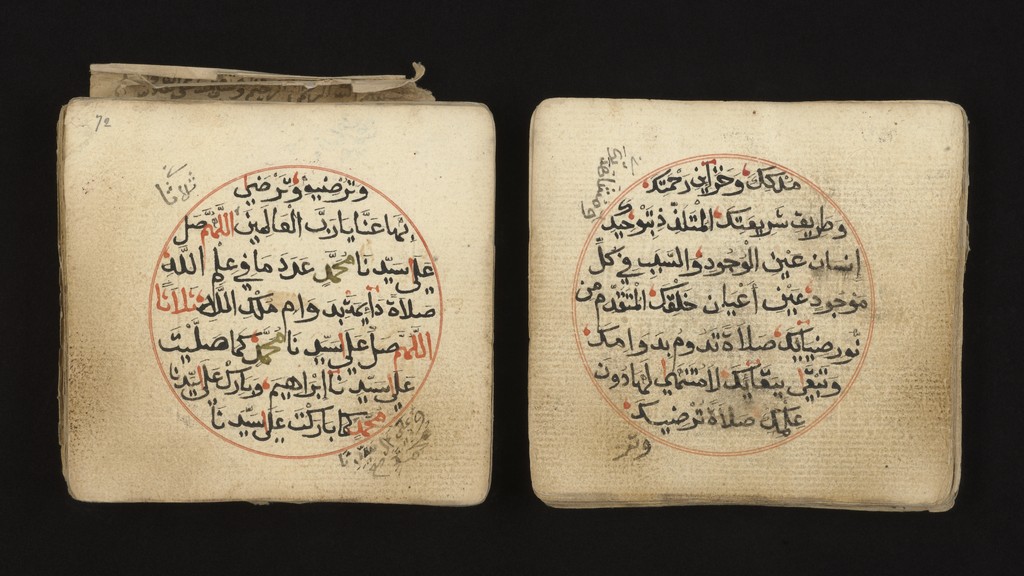 ملكك وخزاين رحمتك
وطريق شريعتك المتلذذ بتوحيدك
إنسان عين الوجود والسبب في كل
موجود عين أعيان خلقك المتقدم من
نور ضيائك صلاة تدوم بدوامك
وتبقى ببقائك لا منتهى لها دون
علمك صلاة ترضيك
وتر
72
ثلاثا
وترضيه وترضى
بها عنا يا رب العالمين اللهم صل
على سيدنا محمد عدد ما في علم الله
صلاة دايمة بدوام ملك الله ثلاثا
اللهم صل على سيدنا محمد كما صليت
على سيدنا إبراهيم وبارك على سيدنا
محمد كما باركت على سيدنا